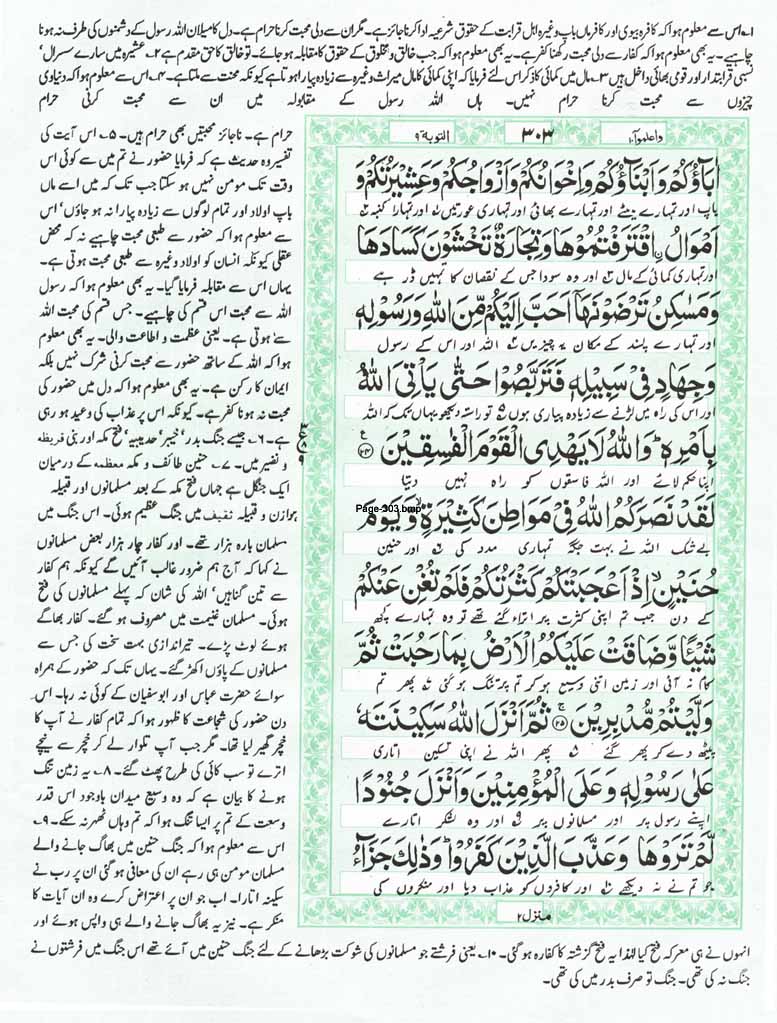 ۱؎ اس سے معلوم ہوا کہ کافرہ بیوی اور کافر ماں باپ وغیرہ اہل قرابت کے حقوق شرعیہ ادا کرنا جائز ہے۔ مگر ان سے دلی محبت کرنا حرام ہے۔ دل کا میلان اللہ رسول کے دشمنوں کی طرف نہ ہونا
چاہیے۔ یہ بھی معلوم ہوا کہ کفار سے دلی محبت رکھنا کفر ہے۔ یہ بھی معلوم ہوا کہ جب خالق و مخلوق کے حقوق کا مقابلہ ہو جائے۔ تو خالق کا حق مقدم ہے ۲؎ عشیرہ میں سارے سسرال'
نسبی قرابتدار اور قومی بھائی داخل ہیں ۳؎ مال میں کمائی کا ذکر اس لئے فرمایا کہ اپنی کمائی کا مال میراث وغیرہ سے زیادہ پیارا ہوتا ہے کیونکہ محنت سے ملتا ہے۔ ۴؎ اس سے معلوم ہوا کہ دنیاوی
چیزوں سے محبت کرنا حرام نہیں۔ ہاں اللہ رسول کے مقابلہ میں ان سے محبت کرنی حرام
واعلموا ۱۰
۳۰۳
التوبة ۹
اٰبَآؤُكُمْ وَاَبْنَآؤُكُمْ وَاِخْوَانُكُمْ وَاَزْوَاجُكُمْ وَعَشِيْرَتُكُمْ وَ
باپ اور تمہارے بیٹے اور تمہارے بھائی اور تمہاری عورتیں اور تمہارا کنبہ
اَمْوَالُ ۨاقْتَرَفْتُمُوْهَا وَتِجَارَةٌ تَخْشَوْنَ كَسَادَهَا
اور تمہاری کمائی کے مال اور وہ سودا جس کے نقصان کا تمہیں ڈر ہے
وَمَسٰكِنُ تَرْضَوْنَهَآ اَحَبَّ اِلَيْكُمْ مِّنَ اللّٰهِ وَرَسُوْلِهٖ
اور تمہارے پسند کے مکان یہ چیزیں اللہ اور اس کے رسول
وَجِهَادٍ فِيْ سَبِيْلِهٖ فَتَرَبَّصُوْا حَتّٰى يَاْتِيَ اللّٰهُ
اور اس کی راہ میں لڑنے سے زیادہ پیاری ہوں تو راستہ دیکھو یہاں تک کہ اللہ
بِاَمْرِهٖ ؕ وَاللّٰهُ لَا يَهْدِي الْقَوْمَ الْفٰسِقِيْنَ ۲۴
اپنا حکم لائے اور اللہ فاسقوں کو راہ نہیں دیتا
لَقَدْ نَصَرَكُمُ اللّٰهُ فِيْ مَوَاطِنَ كَثِيْرَةٍ ۙ وَّيَوْمَ
Page-303.bmp
بے شک اللہ نے بہت جگہ تمہاری مدد کی اور حنین
حُنَيْنٍ ۙ اِذْ اَعْجَبَتْكُمْ كَثْرَتُكُمْ فَلَمْ تُغْنِ عَنْكُمْ
کے دن جب تم اپنی کثرت پر اترا گئے تھے تو وہ تمہارے کچھ
شَيْـًٔا وَّضَاقَتْ عَلَيْكُمُ الْاَرْضُ بِمَا رَحُبَتْ ثُمَّ
کام نہ آئی اور زمین اتنی وسیع ہو کر تم پر تنگ ہو گئی پھر تم
وَلَّيْتُمْ مُّدْبِرِيْنَ ۲۵ ثُمَّ اَنْزَلَ اللّٰهُ سَكِيْنَتَهٗ
پیٹھ دے کر پھر گئے پھر اللہ نے اپنی تسکین اتاری
عَلٰى رَسُوْلِهٖ وَعَلَى الْمُؤْمِنِيْنَ وَاَنْزَلَ جُنُوْدًا
اپنے رسول پر اور مسلمانوں پر اور وہ لشکر اتارے
لَّمْ تَرَوْهَا وَعَذَّبَ الَّذِيْنَ كَفَرُوْا ؕ وَذٰلِكَ جَزَآءُ
جو تم نے نہ دیکھے اور کافروں کو عذاب دیا اور منکروں کی
منزل ۲
حرام ہے۔ ناجائز محبتیں بھی حرام ہیں۔ ۵؎ اس آیت کی
تفسیر وہ حدیث ہے کہ فرمایا حضور نے تم میں سے کوئی اس
وقت تک مومن نہیں ہو سکتا جب تک کہ میں اسے ماں
باپ اولاد اور تمام لوگوں سے زیادہ پیارا نہ ہو جاؤں' اس
سے معلوم ہوا کہ حضور سے طبعی محبت چاہیے نہ کہ محض
عقلی کیونکہ انسان کو اولاد وغیرہ سے طبعی محبت ہوتی ہے۔
یہاں اس سے مقابلہ فرمایا گیا۔ یہ بھی معلوم ہوا کہ رسول
اللہ سے محبت اس قسم کی چاہیے۔ جس قسم کی محبت اللہ
سے ہوتی ہے۔ یعنی عظمت و اطاعت والی۔ یہ بھی معلوم
ہوا کہ اللہ کے ساتھ حضور سے محبت کرنی شرک نہیں بلکہ
ایمان کا رکن ہے۔ یہ بھی معلوم ہوا کہ دل میں حضور کی
محبت نہ ہونا کفر ہے۔ کیونکہ اس پر عذاب کی وعید ہو رہی
ہے۔ ۶؎ جیسے جنگ بدر' خیبر' حدیبیہ' فتح مکہ اور بنی قریظہ
و نضیر میں۔ ۷؎ حنین طائف و مکہ معظمہ کے درمیان
ایک جنگل ہے جہاں فتح مکہ کے بعد مسلمانوں اور قبیلہ
ہوازن و قبیلہ ثقیف میں جنگ عظیم ہوئی۔ اس جنگ میں
مسلمان بارہ ہزار تھے۔ اور کفار چار ہزار بعض مسلمانوں
نے کہا کہ آج ہم ضرور غالب آئیں گے کیونکہ ہم کفار
سے تین گناہیں' اللہ کی شان کہ پہلے مسلمانوں کی فتح
ہوئی۔ مسلمان غنیمت میں مصروف ہو گئے۔ کفار بھاگے
ہوئے لوٹ پڑے۔ تیر اندازی بہت سخت کی جس سے
مسلمانوں کے پاؤں اکھڑ گئے۔ یہاں تک کہ حضور کے ہمراہ
سوائے حضرت عباس اور ابو سفیان کے کوئی نہ رہا۔ اس
دن حضور کی شجاعت کا ظہور ہوا کہ تمام کفار نے آپ کا
خچر گھیر لیا تھا۔ مگر جب آپ تلوار لے کر خچر سے نیچے
اترے تو سب کائی کی طرح پھٹ گئے۔ ۸؎ یہ زمین تنگ
ہونے کا بیان ہے کہ وہ وسیع میدان باوجود اس قدر
وسعت کے تم پر ایسا تنگ ہوا کہ تم وہاں ٹھہر نہ سکے۔ ۹؎
اس سے معلوم ہوا کہ جنگ حنین میں بھاگ جانے والے
مسلمان مومن ہی رہے ان کی معافی ہو گئی ان پر رب نے
سکینہ اتارا۔ اب جو ان پر اعتراض کرے وہ ان آیات کا
منکر ہے۔ نیز یہ بھاگ جانے والے ہی واپس ہوئے اور
انہوں نے ہی معرکہ فتح کیا لہٰذا یہ فتح گزشتہ کا کفارہ ہو گئی۔ ۱۰؎ یعنی فرشتے جو مسلمانوں کی شوکت بڑھانے کے لئے جنگ حنین میں آئے تھے اس جنگ میں فرشتوں نے
جنگ نہ کی تھی۔ جنگ تو صرف بدر میں کی تھی۔